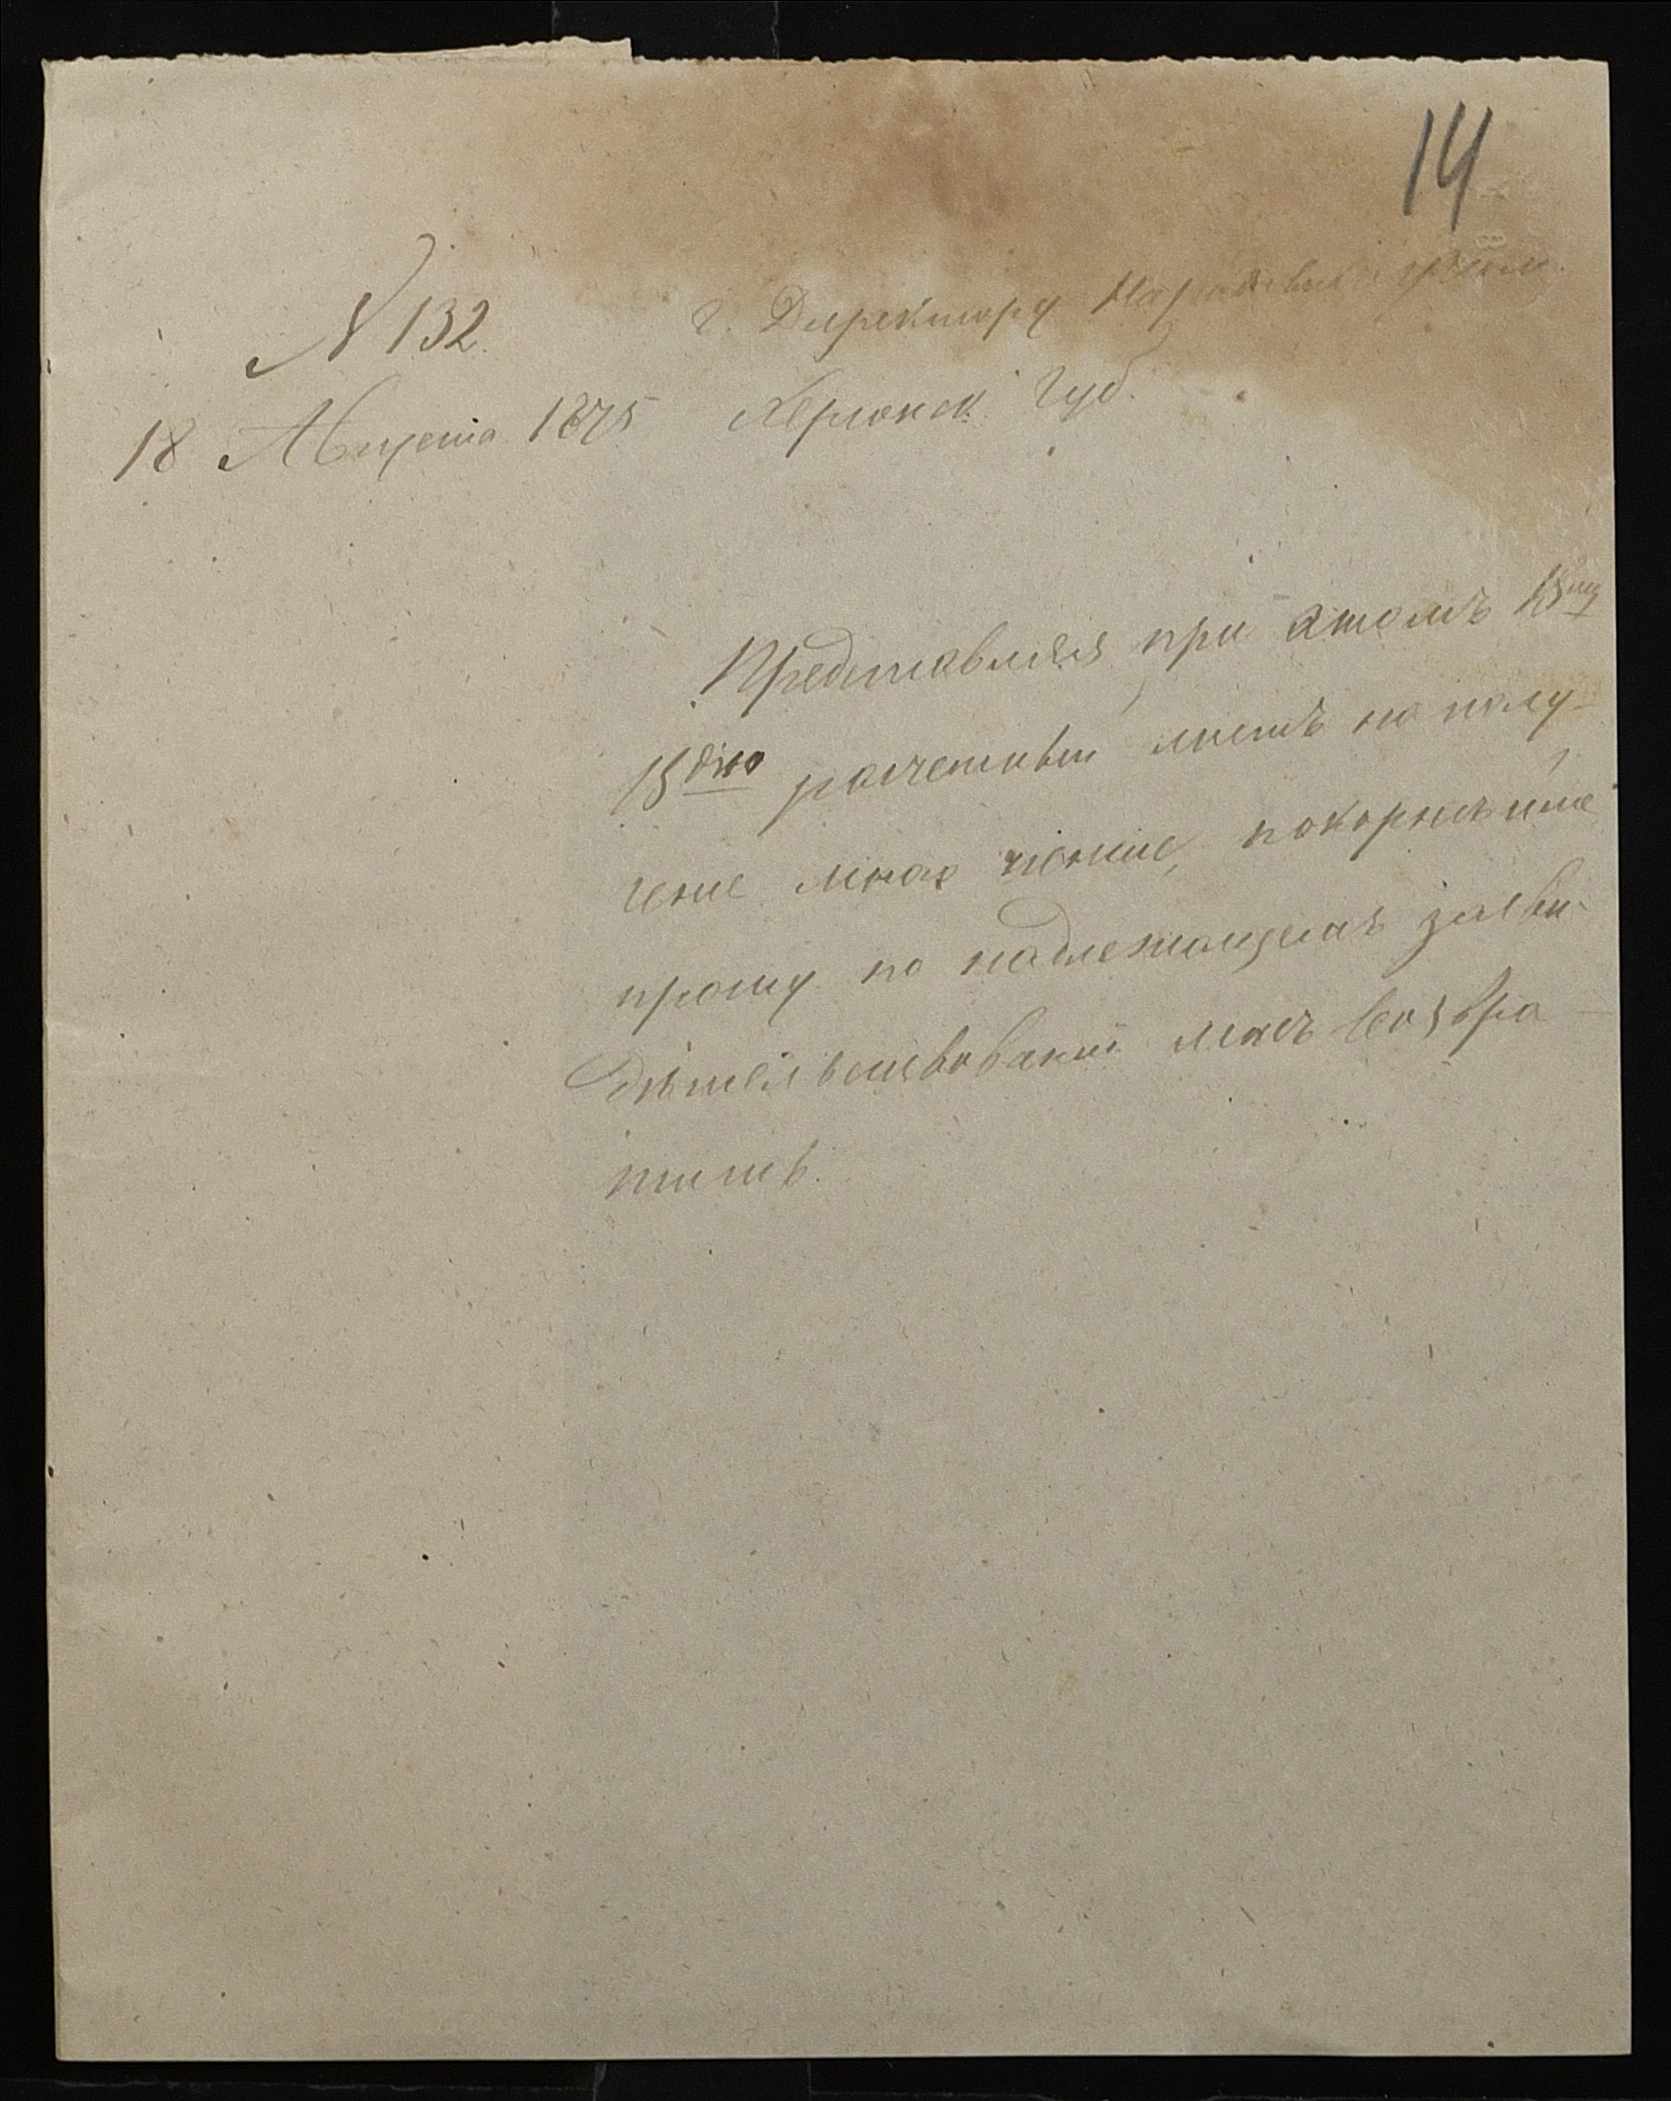 14
№ 132.
18 Августа 1875
г. Директору Народныхъ училищ.
Херсонск. Губ.
Представляя при этомъ
расчетный листъ на полу-
ченіе мною пенсіи, покорнѣйше
прошу по надлежащемъ засви-
дѣтельствованіи мнѣ возвра-
тить.